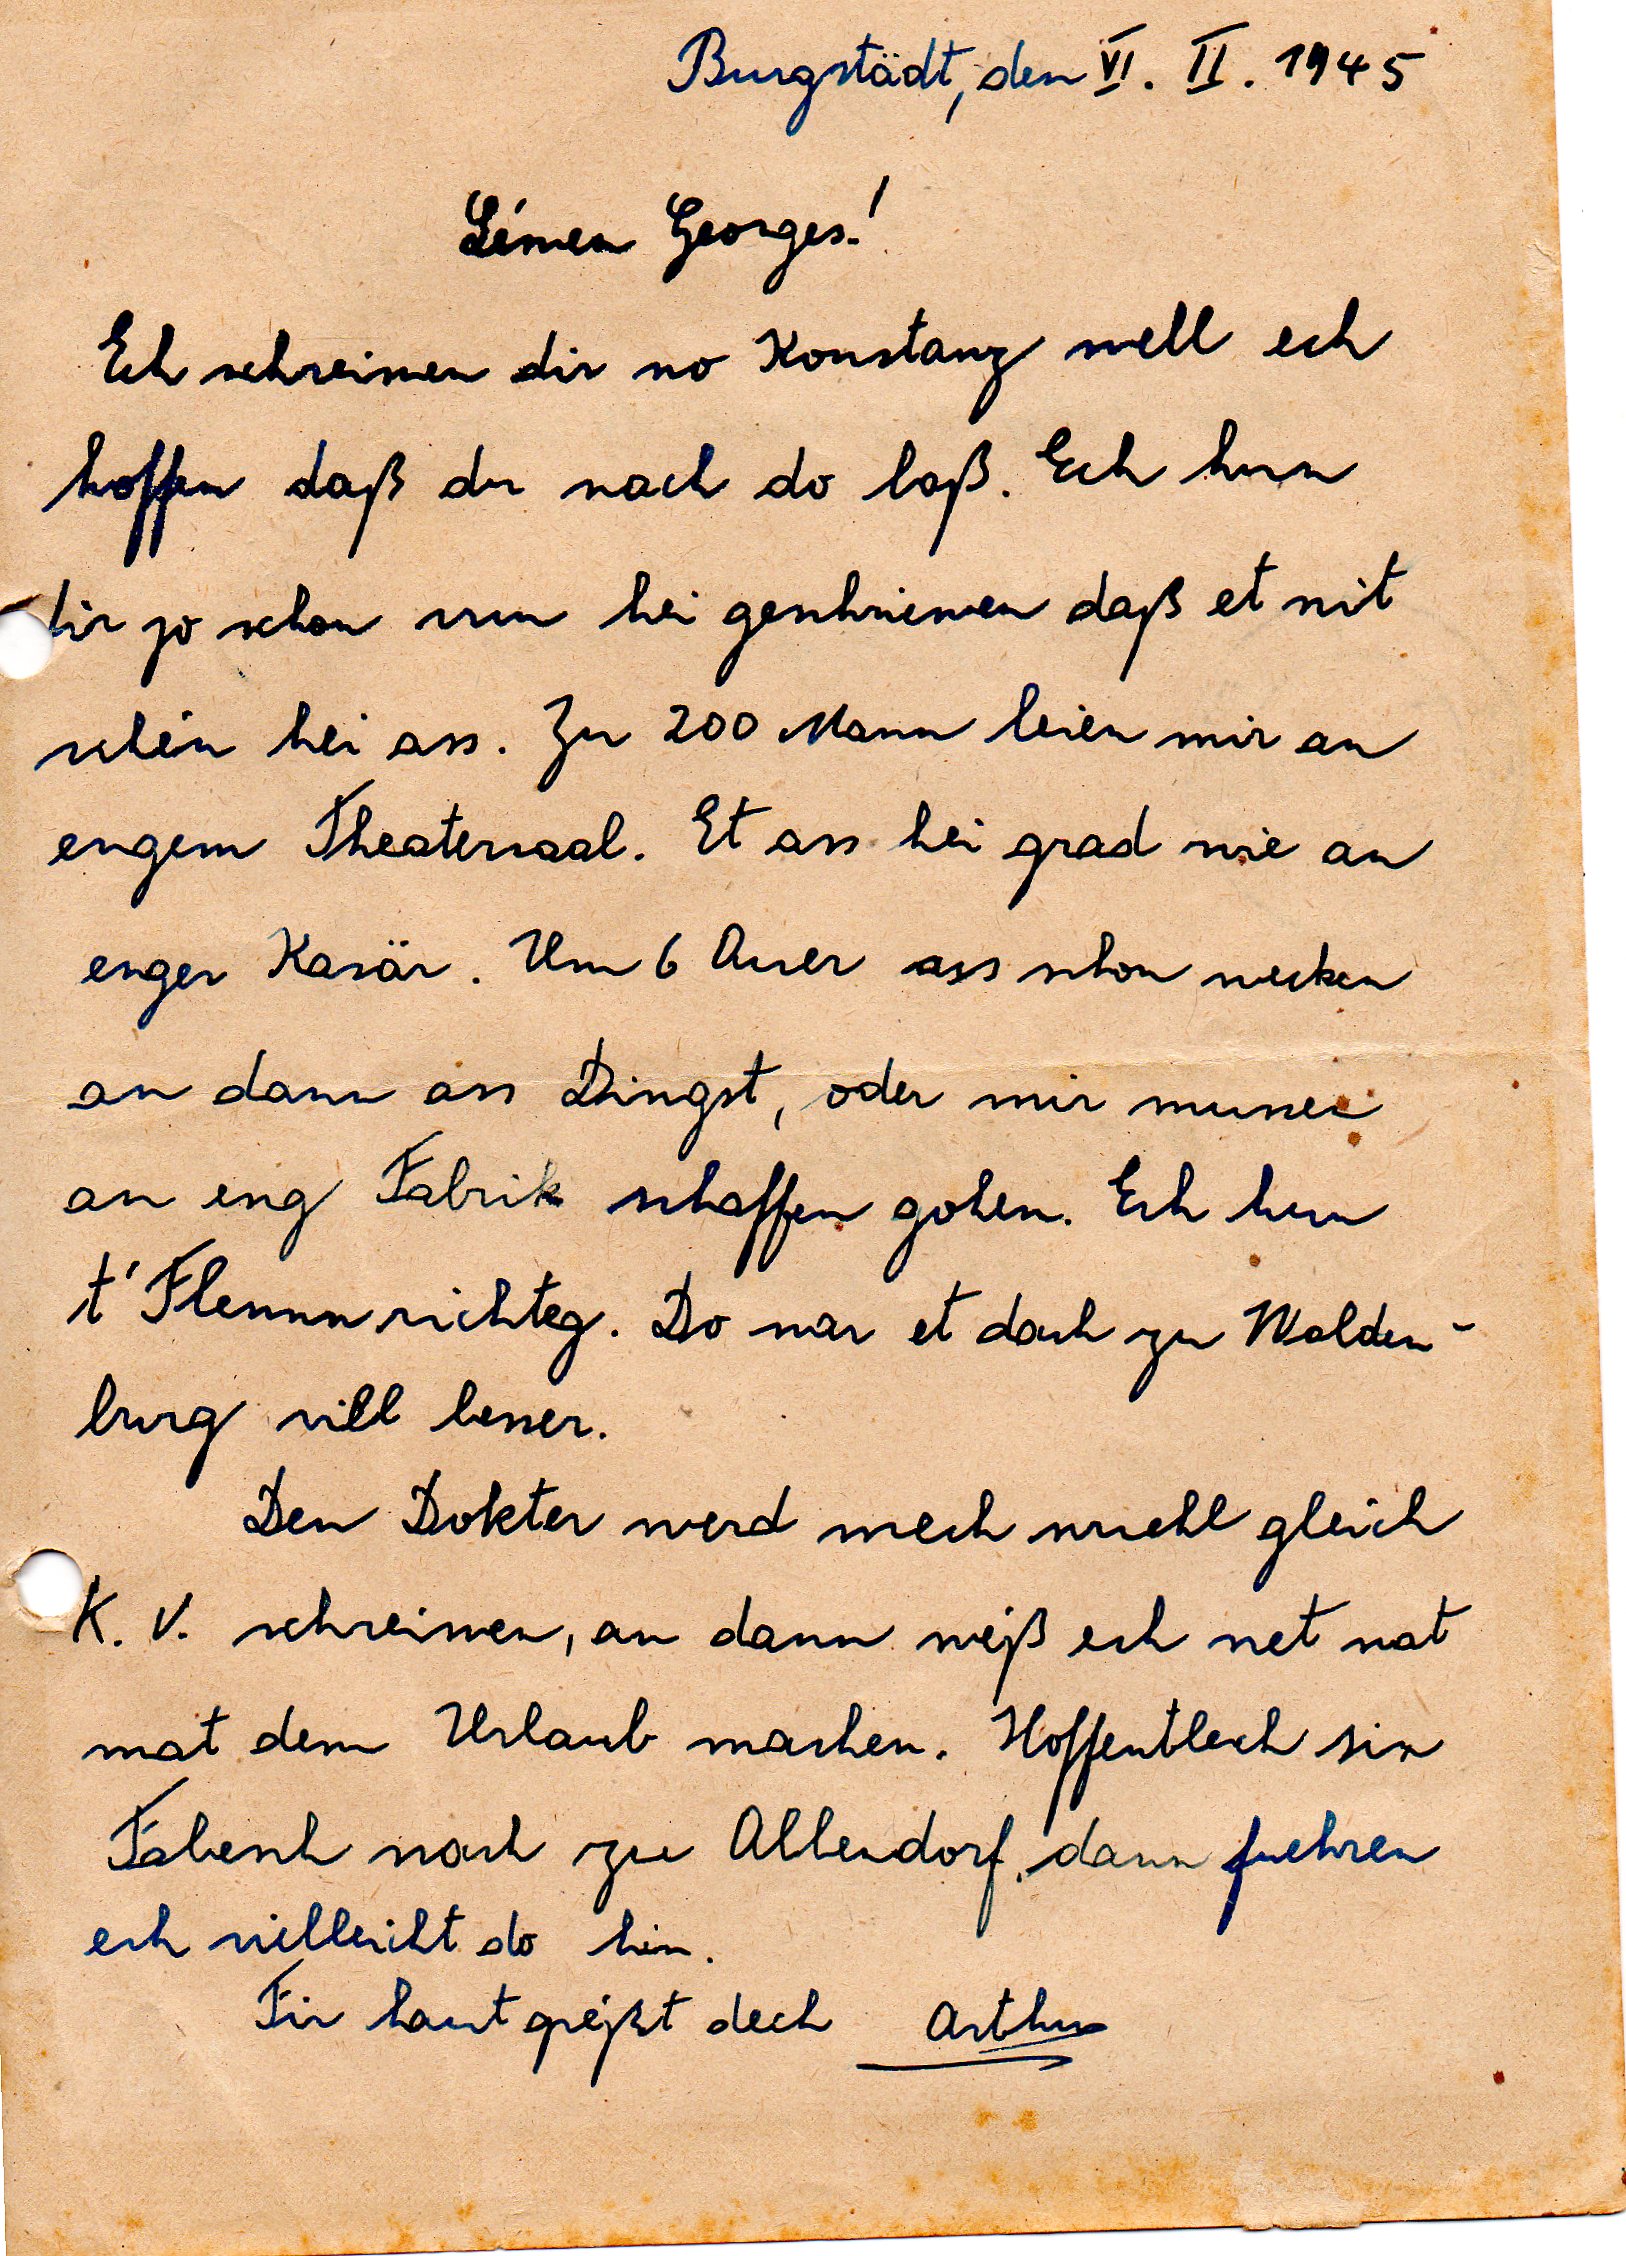 Burgstädt, den VI. II. 1945
Léiwen Georges!
Ech schreiwen dir no Konstanz well ech
hoffen daß du nach do baß. Ech hun
dir jo schon vun hei geschriewen daß et nit
schéin hei ass. Zu 200 Mann leien mir an
engem Theatersaal. Et ass hei grad wie an
enger Kasär. Um 6 Auer ass schon wecken
an dann ass Dingst, oder mir mussen
an eng Fabrik schaffen gohen. Ech hun
t'Flemm richteg. Do war et doch zu Walden-
burg vill besser.
Den Dokter werd mech wuehl gleich
K. V. schreiwen, an dann wéiß ech net wat
mat dem Urlaub machen. Hoffentlech sin
Fabesch noch zu Allendorf, dann fuehren
ech vielleicht do hin.
Fir haut gréißt dech Arthur